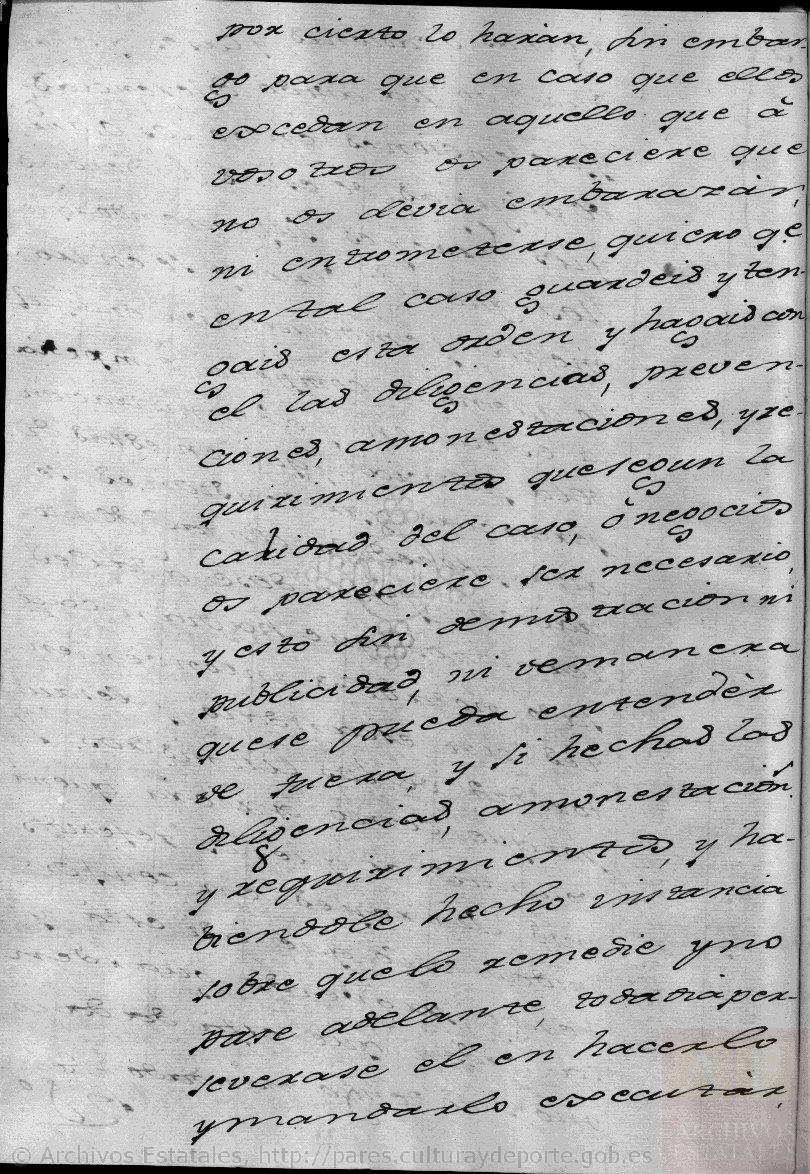 por cierto lo haràn, sin embar-
go para que en caso que ellos
excedan en aquello que â
vosotros os pareciere que
no os devia embarazàr,
ni entrometerse, quiero qe
en tal caso guardeis y ten-
gais esta orden y hagais con
el las diligencias, preven-
ciones, amonestaciones, y re-
quirimientos que segun la
calidad del caso, ô negocios
os pareciere ser necesario,
y esto sin demostracion ni
publicidad, ni de manera
que se pueda entendèr
de fuera, y si hechas las
diligencias, amonestacions
y requirimientos, y ha-
biendole hecho instancia
sobre que lo remedie y no
pase adelante, todadia per-
severase el en hacerlo
y mandarlo executàr,
© Archivos Estatales, http://pares.culturaydeporte.gob.es
ARCHIVOS
ESTATALES